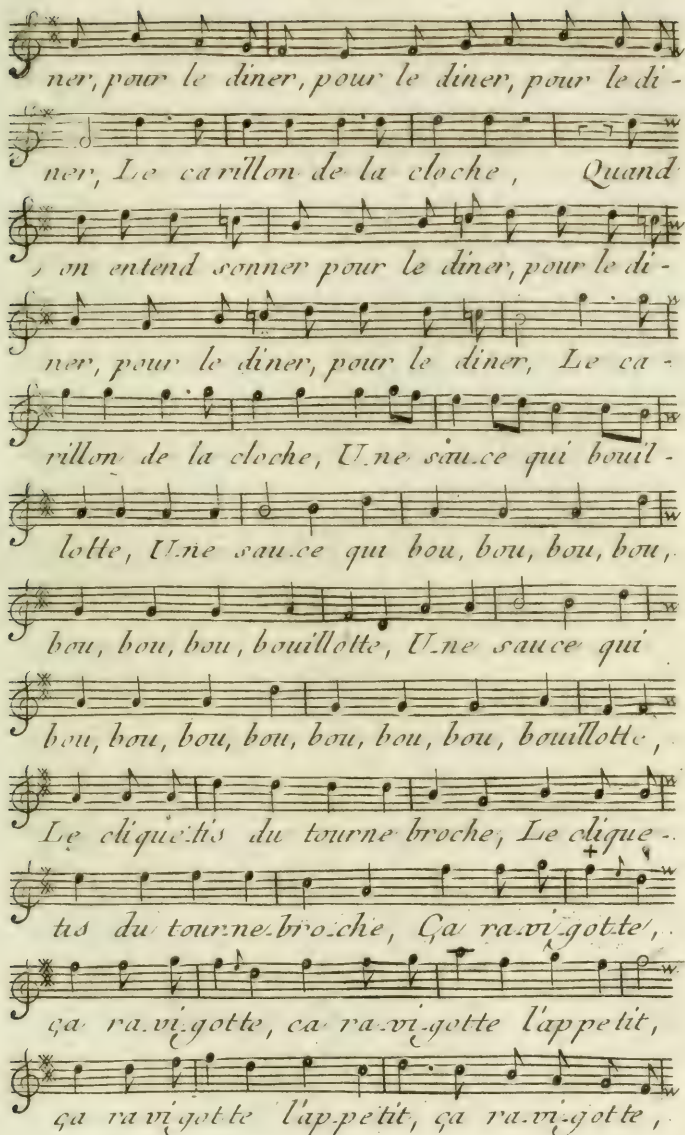 ner, pour le diner, pour le diner, pour le di-
ner, Le carillon de la cloche, Quand
on entend sonner pour le diner, pour le di-
ner, pour le diner, pour le diner, Le ca-
rillon de la cloche, U-ne sau-ce qui bouil-
lotte, U-ne sau-ce qui bou, bou, bou, bou,
bou, bou, bou, bouillotte, U-ne sauce qui
bou, bou, bou, bou, bou, bou, bou, bouillotte,
Le clique-tis du tourne broche, Le clique-
tis du tour-ne-bro-che, Ça ra-vi-got-te,
ça ra-vi-gotte, ca ra-vi-gotte l'appetit,
ça ra vi got te l'ap-petit, ça ra-vi-gotte,